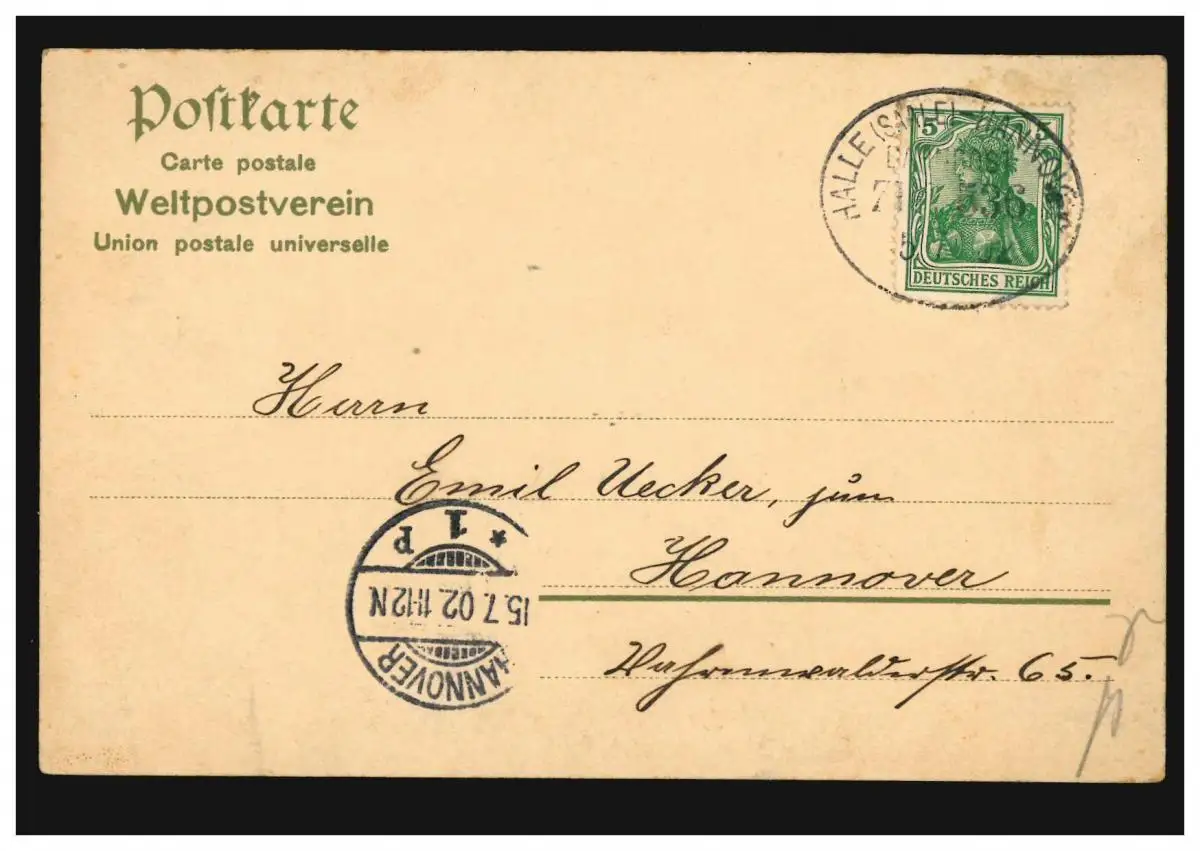 Poſtkarte
Carte postale
Weltpostverein
Union postale universelle
HALLE (SAALE)-HANNOVER
BAHNPOST
ZUG 536
5
DEUTSCHES REICH
Herrn
Emil Uecker, jun
Hannover
Vahrenwalderstr. 65.
* 1 P
15.7.02. 11-12 N
HANNOVER